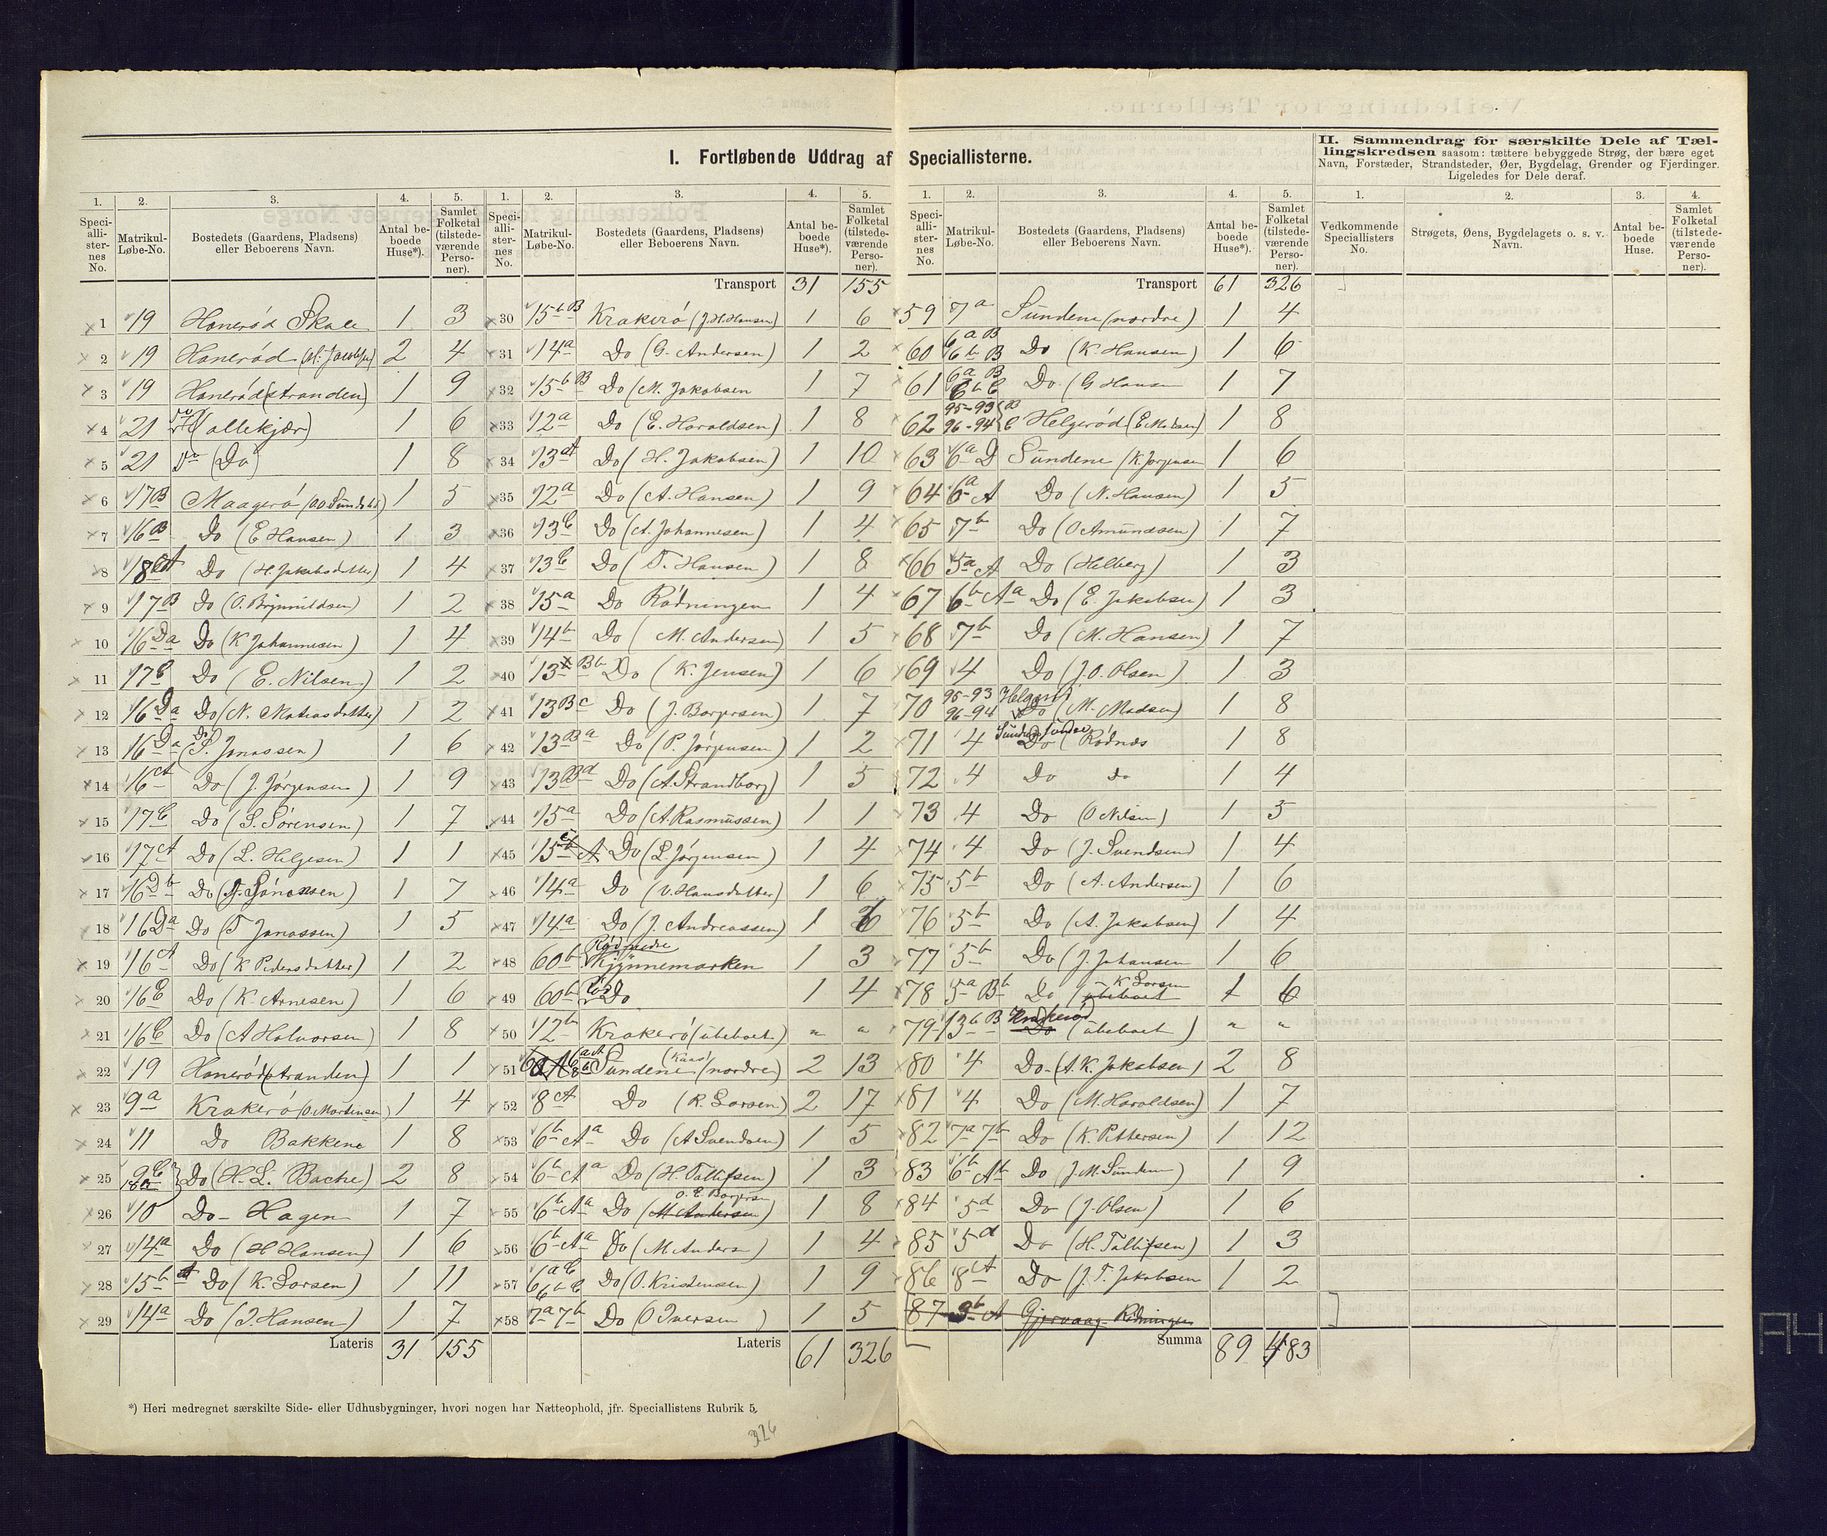 I. Fortløbende Uddrag af Speciallisterne.
II. Sammendrag for særskilte Dele af Tæl-
lingskredsen saasom: tættere bebyggede Strøg, der bære eget
Navn, Forstæder, Strandsteder, Øer, Bygdelag, Grender og Fjerdinger.
Ligeledes for Dele deraf.
1. 2. 3. 4. 5.
Speciallisternes No. Matrikul-Løbe-No. Bostedets (Gaardens, Pladsens) eller Beboerens Navn. Antal beboede Huse*). Samlet Folketal (tilstedeværende Personer).
1 19 Honerød Skole 1 3
2 19 Honerød 2 4
3 19 Honerød (Stranden) 1 9
4 21 (Hollekjær) 1 6
5 21 (Do) 1 8
6 17B Maagerø 1 5
7 16B Do (E Hansen) 1 3
8 18 Do (H. Jakobsdatter) 1 4
9 17B Do (O. Brynnildsen) 1 2
10 16Da Do (K Johannesen) 1 4
11 17C Do (E. Nilsen) 1 2
12 16Da Do (N. Matiasdatter) 1 2
13 16Da Do (P. Jonassen) 1 6
14 16A Do (J. Jørgensen) 1 9
15 17C Do (S. Sørensen) 1 7
16 17A Do (L. Helgesen) 1 1
17 16Db Do 1 7
18 16Da Do (T Jonassen) 1 5
19 16A Do (K Pedersdatter) 1 2
20 16C Do (K. Arnesen) 1 6
21 16C Do (A Halvorsen) 1 8
22 19 Honerød (Stranden) 1 1
23 9a Krakerø (O. Mortensen) 1 4
24 11 Do Bakkene 1 8
25 9C Do (H. L. Bache) 2 8
26 10 Do - Hagen 1 7
27 14a Do (H Hansen) 1 6
28 15b A Do (K. Larsen) 1 11
29 14a Do (I. Hansen) 1 7
Lateris 31 155
*) Heri medregnet særskilte Side- eller Udhusbygninger, hvori nogen har Natteophold, jfr. Speciallistens Rubrik 5.
1. 2. 3. 4. 5.
Speciallisternes No. Matrikul-Løbe-No. Bostedets (Gaardens, Pladsens) eller Beboerens Navn. Antal beboede Huse*). Samlet Folketal (tilstedeværende Personer).
Transport 31 155
30 15b B Krakerø (J. H. Hansen) 1 6
31 14a Do (G. Andersen) 1 2
32 15b B Do (M. Jakobsen 1 7
33 12a Do (E. Haraldsen) 1 8
34 13A Do (H. Jakobsen) 1 10
35 12a Do (A. Hansen) 1 9
36 13C Do (A. Johannesen) 1 4
37 13C Do (T. Hansen) 1 8
38 15a Do Rødningen 1 4
39 14b Do (M. Andersen) 1 5
40 13 Bb Do (K. Jensen) 1 6
41 13Bc Do (J. Borgersen) 1 7
42 13Ba Do (P. Jørgensen) 1 2
43 13Bd Do (A. Strandborg) 1 5
44 15a Do (A. Rasmussen) 1 1
45 15 A Do (L. Jørgensen) 1 4
46 14a Do (V. Hansdatter) 1 6
47 14a Do (J. Andreassen) 1 6
48 60b Rød nedre Kjønnemarken 1 3
49 60b Rød Do 1 4
50 12b Krakerø (ubeboet) " "
51 Sundene (nordre) 2 13
52 8A Do (R. Larsen) 2 17
53 6b Aa Do (A Svendsen) 1 5
54 6b Aa Do (H. Tollifsen) 1 3
55 6b Aa Do O. E. Borgersen (M Andersen) 1 8
56 6b Aa Do (M. Anders) 1 4
57 6a C 6b C Do (O. Kristensen) 1 9
58 7a 7b Do (O Iversen) 1 5
Lateris 61 326
326
1. 2. 3. 4. 5.
Speciallisternes No. Matrikul-Løbe-No. Bostedets (Gaardens, Pladsens) eller Beboerens Navn. Antal beboede Huse*). Samlet Folketal (tilstedeværende Personer).
Transport 61 326
59 7a Sundene (nordre) 1 4
60 6a B 6b B Do (K. Hansen) 1 6
61 6a B 6b C Do (G Hansen 1 7
62 95-93 96-94 B C Helgerød (E. Madsen) 1 8
63 6a D Sundene (K. Jørgensen 1 6
64 6a A Do (N. Hansen) 1 5
65 7b Do (O Amundsen) 1 7
66 5a A Do (Helberg) 1 3
67 6b Aa Do (E. Jakobsen) 1 3
68 7b Do (M. Hansen) 1 7
69 4 Do (J. O. Olsen) 1 3
70 95-93 96-94 Do (M. Madsen) 1 8
71 4 Do (Rødnæs 1 8
72 4 Do do 1 4
73 4 Do (O Nilsen) 1 5
74 4 Do (J. Svendsen) 1 4
75 5b Do (A. Andersen) 1 6
76 5b Do (A. Jakobsen) 1 4
77 5b Do (J. Johansen 1 6
78 5a Bb Do (K. Larsen ubeboet 1 6
79 13b B Krakerø Do (ubeboet) " "
80 4 Do - (A. K. Jakobsen) 2 8
81 4 Do (M. Haraldsen) 1 7
82 7a 7b Do (K. Pettersen) 1 12
83 6b Ab Do (J. M. Sunden) 1 9
84 5d Do (J. Olsen) 1 6
85 5d Do (H. Tollifsen) 1 3
86 8A Do (J. T. Jakobsen 1 2
87 3b A Gjervaag Rødningen
Summa 89 483
1. 2. 3. 4.
Vedkommende Speciallisters No. Strøgets, Øens, Bygdelagets o. s. v. Navn. Antal beboede Huse. Samlet Folketal (tilstedeværende Personer).